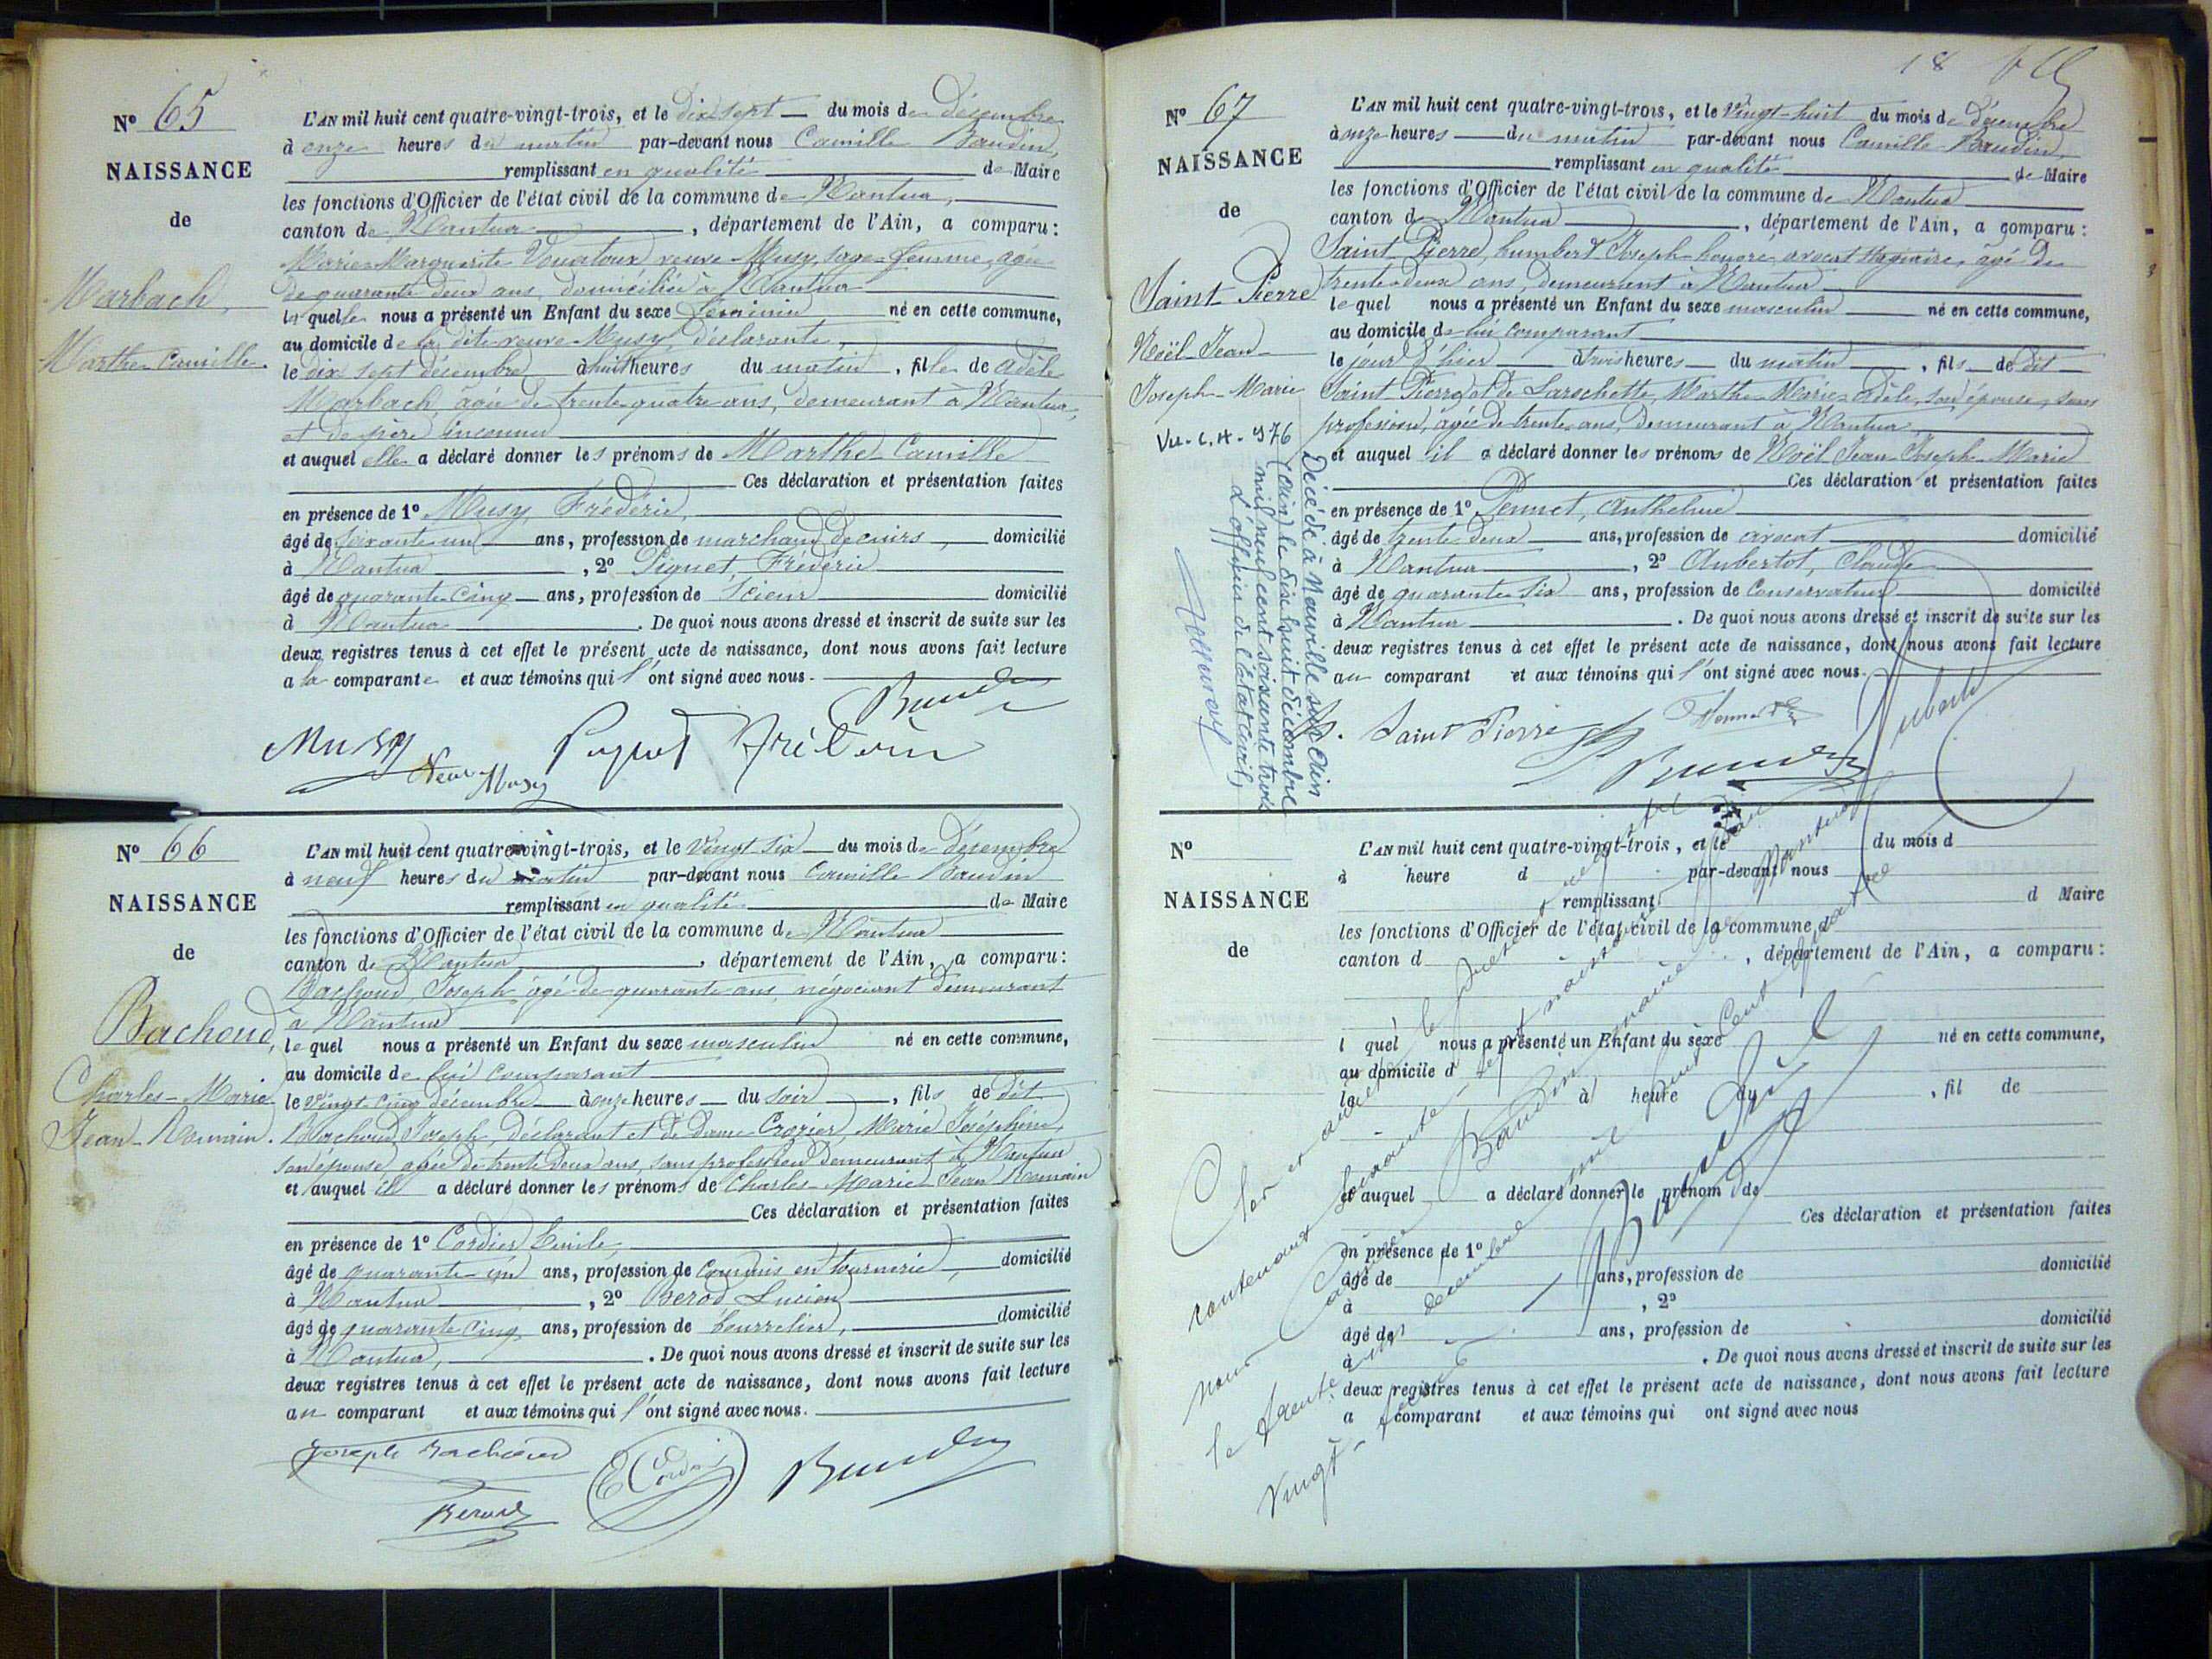 N° 65
NAISSANCE
de
Marbach,
Marthe Camille.
L'AN mil huit cent quatre-vingt-trois, et le dix sept du mois de Décembre
à onze heures du matin par-devant nous Camille Baudin,
remplissant en qualité de Maire
les fonctions d'Officier de l'état civil de la commune de Nantua,
canton de Nantua, département de l'Ain, a comparu :
Marie Marguerite veuve Musy, sage-femme, agée
de quarante deux ans, domiciliée à Nantua
laquelle nous a présenté un Enfant du sexe féminin né en cette commune,
au domicile de la dite veuve Musy, déclarante,
le dix sept décembre à huit heures du matin, fille de Adèle
Marbach, agée de trente quatre ans, demeurant à Nantua,
et de père inconnu
et auquel elle a déclaré donner les prénoms de Marthe Camille
Ces déclaration et présentation faites
en présence de 1° Musy, Frédéric,
âgé de soixante un ans, profession de marchand de cuirs, domicilié
à Nantua, 2° Piquet, Frédéric
âgé de quarante cinq ans, profession de Scieur domicilié
à Nantua. De quoi nous avons dressé et inscrit de suite sur les
deux registres tenus à cet effet le présent acte de naissance, dont nous avons fait lecture
a la comparante et aux témoins qui l'ont signé avec nous.
Baudin
Musy Piquet Frédéric
Veuve Musy
N° 66
NAISSANCE
de
Bachoud,
Charles-Marie
Jean-Romain.
L'AN mil huit cent quatre-vingt-trois, et le vingt six du mois de Décembre
à neuf heures du matin par-devant nous Camille Baudin
remplissant en qualité de Maire
les fonctions d'Officier de l'état civil de la commune de Nantua
canton de Nantua, département de l'Ain, a comparu :
Bachoud, Joseph âgé de quarante ans, négociant demeurant
à Nantua
lequel nous a présenté un Enfant du sexe masculin né en cette commune,
au domicile de lui comparant
le vingt cinq décembre à onze heures du soir, fils de dit
Bachoud, Joseph, déclarant et de dame Crozier, Marie Joséphine,
son épouse, agée de trente deux ans, sans profession demeurant à Nantua
et auquel il a déclaré donner les prénoms de Charles-Marie-Jean Romain
Ces déclaration et présentation faites
en présence de 1° Cordier Emile,
âgé de quarante-un ans, profession de Commis en tournerie, domicilié
à Nantua, 2° Berod Lucien
âgé de quarante cinq ans, profession de bourrelier, domicilié
à Nantua,. De quoi nous avons dressé et inscrit de suite sur les
deux registres tenus à cet effet le présent acte de naissance, dont nous avons fait lecture
au comparant et aux témoins qui l'ont signé avec nous.
Joseph Bachoud E Cordier Baudin
Berod
18
N° 67
NAISSANCE
de
Saint-Pierre
Noël-Jean-
Joseph-Marie
Décédé à Neuville sur Ain
(Ain) le dix huit décembre
mil neuf cent soixante trois
L'officier de l'état civil,
L'AN mil huit cent quatre-vingt-trois, et le vingt-huit du mois de Décembre
à onze heures du matin par-devant nous Camille Baudin,
remplissant en qualité de Maire
les fonctions d'Officier de l'état civil de la commune de Nantua
canton de Nantua, département de l'Ain, a comparu :
Saint-Pierre, humbert Joseph honoré, avocat stagiaire, âgé de
trente-deux ans, demeurant à Nantua
lequel nous a présenté un Enfant du sexe masculin né en cette commune,
au domicile de lui comparant
le jour d'hier à trois heures du matin, fils de dit
Saint-Pierre, et de Larochette, Marthe-Marie-Adèle, son épouse, sans
profession, âgée de trente ans, demeurant à Nantua,
et auquel il a déclaré donner les prénoms de Noël Jean Joseph-Marie
Ces déclaration et présentation faites
en présence de 1° Anthelme
âgé de trente deux ans, profession de avocat domicilié
à Nantua, 2° Aubertot, Claude
âgé de quarante six ans, profession de Conservateur domicilié
à Nantua. De quoi nous avons dressé et inscrit de suite sur les
deux registres tenus à cet effet le présent acte de naissance, dont nous avons fait lecture
au comparant et aux témoins qui l'ont signé avec nous.
Saint Pierre
Baudin
N°
NAISSANCE
de
L'AN mil huit cent quatre-vingt-trois, et le du mois d
à heure d par-devant nous
remplissant d Maire
les fonctions d'Officier de l'état civil de la commune d
canton d, département de l'Ain, a comparu :
l quel nous a présenté un Enfant du sexe né en cette commune,
au domicile d
le à heure du, fil de
et auquel a déclaré donner le prénom de
Ces déclaration et présentation faites
en présence de 1°
âgé de ans, profession de domicilié
à, 2°
âgé de ans, profession de domicilié
à. De quoi nous avons dressé et inscrit de suite sur les
deux registres tenus à cet effet le présent acte de naissance, dont nous avons fait lecture
a comparant et aux témoins qui ont signé avec nous
Clos et arrêté le présent registre
contenant soixante-sept naissances par
nous Camille Baudin maire de Nantua
le trente un décembre mil huit cent quatre
vingt-
Baudin